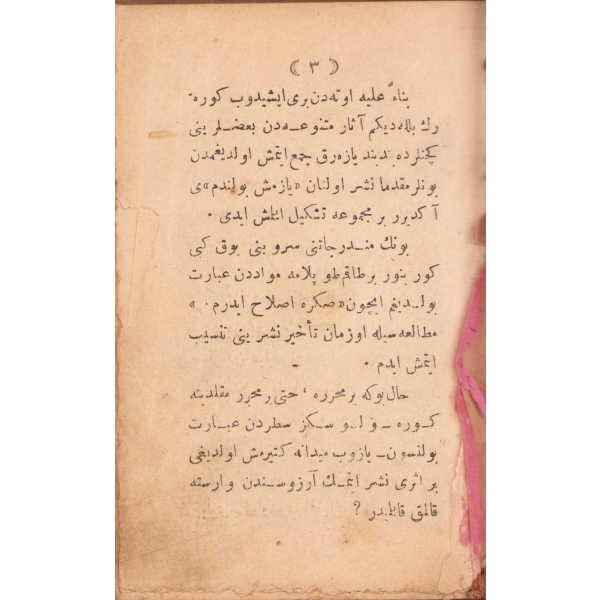 ﴿ ٣ ﴾
بناءً علیه اوته‌دن بری ایشیدوب كوره‌
رك بلله‌دیكم آثار متنوعه‌دن بعضـلرینی
كچنلرده بندبند یازه‌رق جمع ایتمش اولدیغمدن
بونلر مقدما نشر اولنان «یازمش بولندم»ی
آكدیرر بر مجموعه تشكیل ائلمش ایدی .
بونك منـدرجاتنی سروبنی یوق كبی
كورینور برطاقم طوپلامه موادردن عبارت
بولـدیغم ایچون «صكره اصلاح ایدرم .»
مطالعه‌سیله اوزمان تأخیر نشرینی تنسیب
ایتمش ایدم .
حال‌بوكه بر محرره ، حتی بر محرر مقلدینه
كـوره ـ ولـو سـكز سطردن عبـارت
بولنسون ـ یازوب میدانه كتیرمش اولدیغی
بر اثری نشر ایتمـك آرزوسـندن وارسته
قالمق قابلمیدر ؟